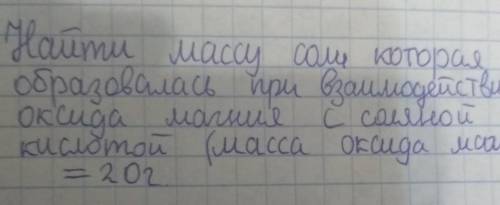 Найти массу соли, которая
образовалась при взаимодействи
оксида магния с соляной
кислотой (масса оксида
= 20г